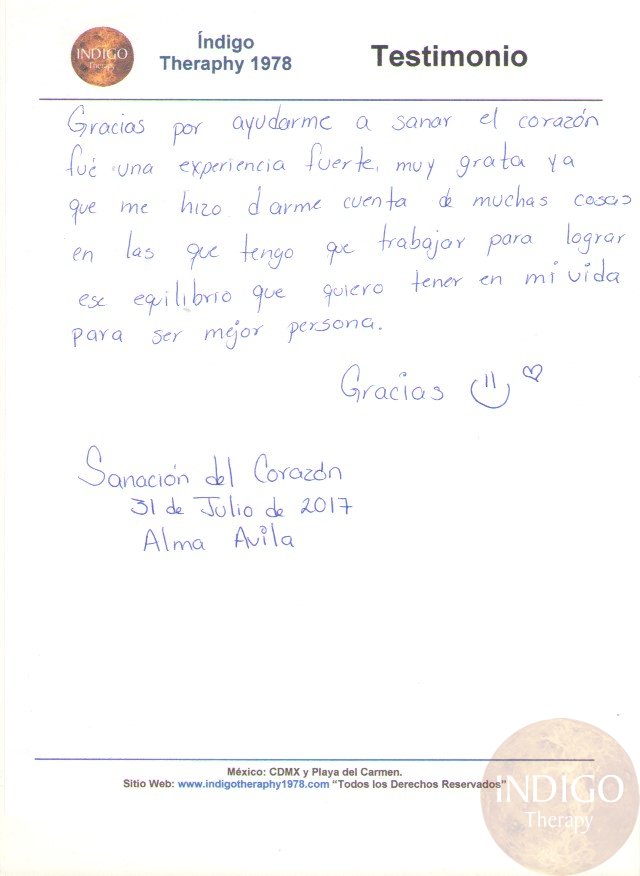 INDIGO
Therapy
Índigo
Theraphy 1978
Testimonio
Gracias por ayudarme a sanar el corazón
fué una experiencia fuerte, muy grata ya
que me hizo darme cuenta de muchas cosas
en las que tengo que trabajar para lograr
ese equilibrio que quiero tener en mi vida
para ser mejor persona.
Gracias
Sanación del Corazón
31 de Julio de 2017
Alma Avila
México: CDMX y Playa del Carmen.
Sitio Web: www.indigotheraphy1978.com “Todos los Derechos Reservados”
INDIGO
Therapy